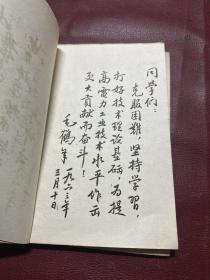 同学们：
克服困难，坚持学习，
打好技术理论基础，为提
高电力工业技术水平作出
更大贡献而奋斗！
毛鹤年
一九六三年
三月十日